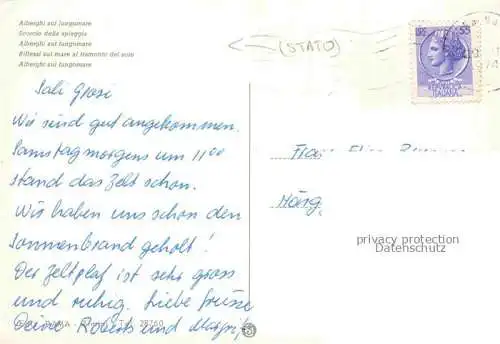 Alberghi sul lungomare
Scorcio della spiaggia
Alberghi sul lungomare
Riflessi sul mare al tramonto del sole
Alberghi sul lungomare
(STATO)
LIRE 55
REPUBBLICA
ITALIANA
Sali Grosi
Wir sind gut angekommen.
Samstagmorgens um 11 00
stand das Zelt schon.
Wir haben uns schon den
Sonnenbrand geholt!
Der Zeltplaz ist sehr gross
und ruhig. Liebe Grüsse
Deine Roberts und
privacy protection
Datenschutz